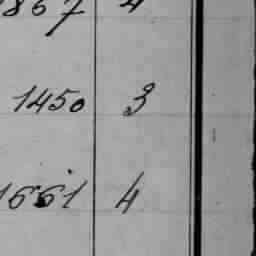 867 4
1450 3
1661 4